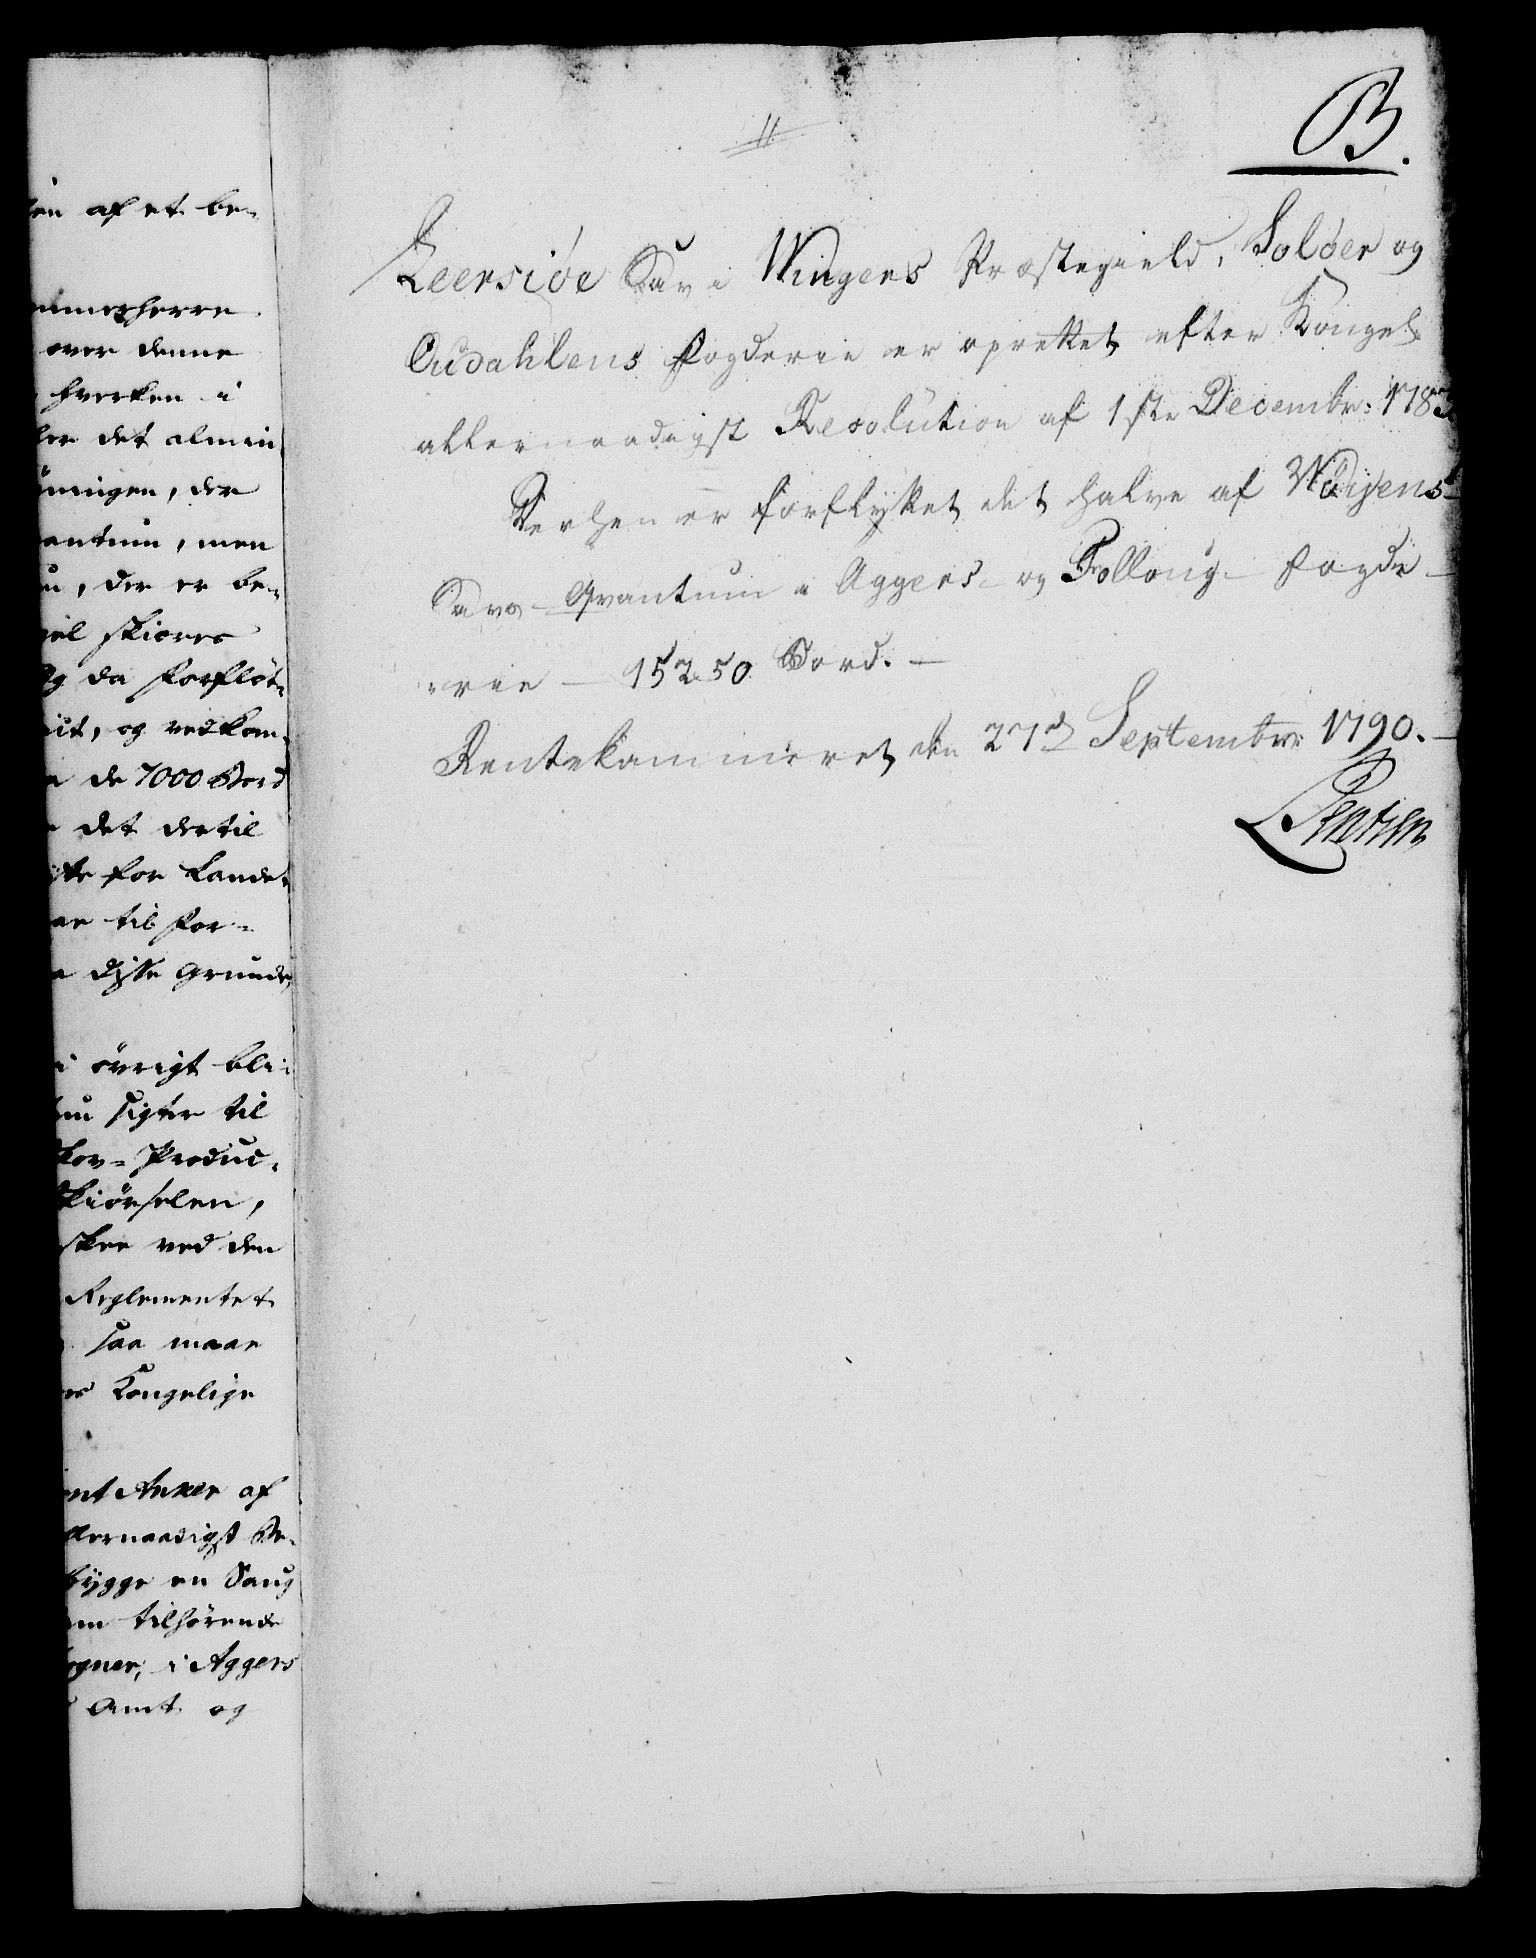 B.
11
Leersiøe Sav i Wingers Præstegield, Soløer og
Oudahlens Fogderie er oprettet efter Kongel.
allernaadigst Resolution af 1ste Decembr: 178
Derhen er forflyttet det halve af Wøyens
Savs Qvantum i Aggers- og Folloug- Fogde-
rie — 15250 Bord. —
Rentekammeret den 27d September 1790. —
af et be-
over denne
hverken i
det almin
, der
antum, men
, der er be-
skiæres
da forfløt-
, og vedkom-
de 7000 Bord
det dertil
for Landet
til for-
disse Grunde,
i øvrigt bli-
sigter til
Produc-
skee ved den
Reglementet
saa maae
Kongelige
Anker af
allernaadigst Be-
bygge en Saug
tilhørende
i Aggers
Amt og